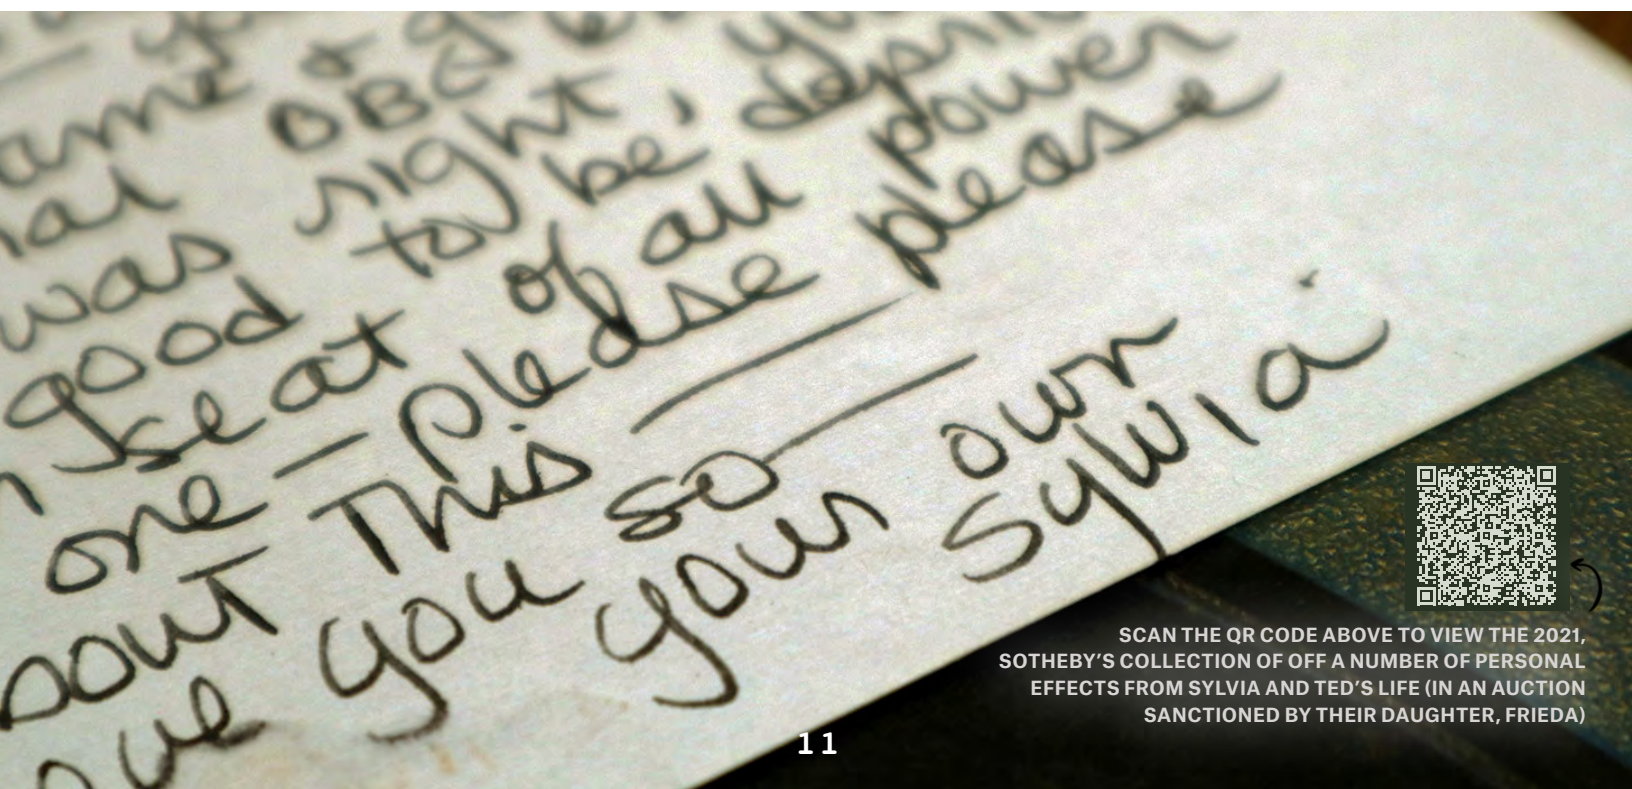 was right
good to be depri
seat of all power
one — please please
bout This —
ove you so —
your own
Sylvia
SCAN THE QR CODE ABOVE TO VIEW THE 2021,
SOTHEBY'S COLLECTION OF OFF A NUMBER OF PERSONAL
EFFECTS FROM SYLVIA AND TED'S LIFE (IN AN AUCTION
SANCTIONED BY THEIR DAUGHTER, FRIEDA)
11